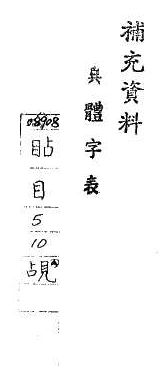 補充資料
異體字表
08908
䀡
目
5
10
覘